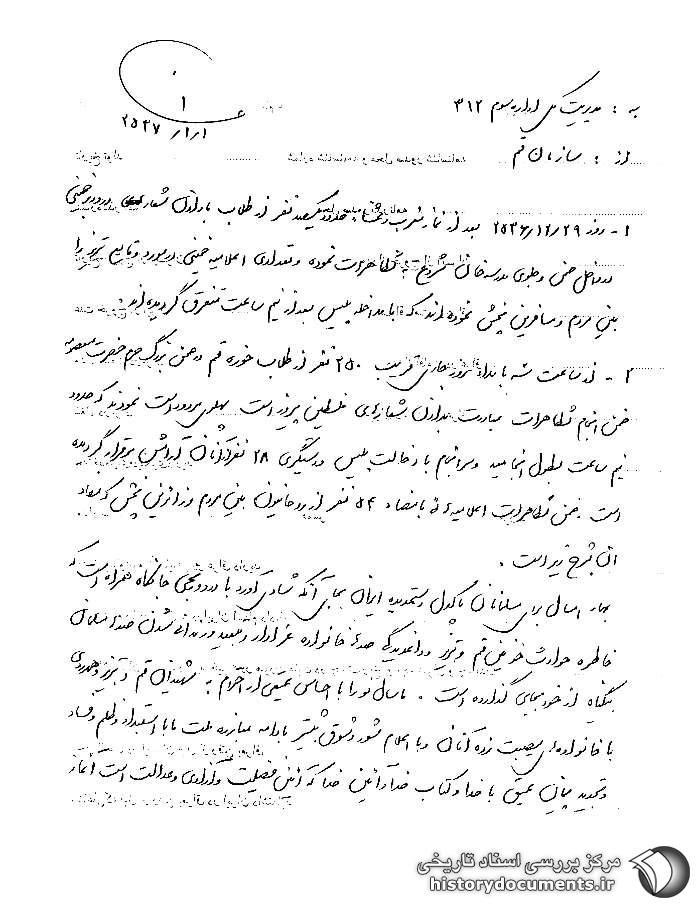 ۱
۲۵۳۷/۱/۱
به : مدیریت کل اداره سوم ۳۱۲
از : سازمان قم
۱- روز ۲۵۳۶/۱۲/۲۹ بعد از نماز مغرب و عشاء حدود یکصد نفر از طلاب با دادن شعار درود بر خمینی
در داخل صحن و جلوی مدرسه خان شروع به تظاهرات نموده و تعدادی اعلامیه خمینی در مورد وقایع تبریز را
بین مردم و مسافرین پخش نموده‌اند که با مداخله پلیس بعد از نیم ساعت متفرق گردیده‌اند.
۲- از ساعت سه بامداد روز جاری قریب ۲۵۰ نفر از طلاب حوزه قم در صحن بزرگ حرم حضرت معصومه
ضمن انجام تظاهرات مبادرت بدادن شعارهای فلسطین پیروز است نمودند که حدود
نیم ساعت بطول انجامید و سرانجام با دخالت پلیس و دستگیری ۲۸ نفر از آنان آرامش برقرار گردیده
است. ضمن تظاهرات اعلامیه‌ای با امضاء ۵۴ نفر از روحانیون بین مردم و زائرین پخش که مفاد
آن بشرح زیر است.
بهار امسال برای مسلمانان پاکدل و ستمدیده ایران بجای آنکه شادی آورد با درد و رنجی جانکاه همراه است که
خاطره حوادث خونین قم و تبریز و داغدیدگی صدها خانواده عزادار و تبعید و زندانی شدن صدها مسلمان
بیگناه از خود بجای گذارده است. ما سال نو را با احساس عمیقی از احترام به شهیدان قم و تبریز و همدردی
با خانواده‌های مصیبت زده آنان و با اعلام شور و شوق بیشتر به ادامه مبارزه ملت ما با استبداد و ظلم و فساد
و تجدید پیمان عمیق با خدا و کتاب خدا و آئین خدا که آئین فضیلت و آزادی و عدالت است آغاز
مرکز بررسی اسناد تاریخی
historydocuments.ir